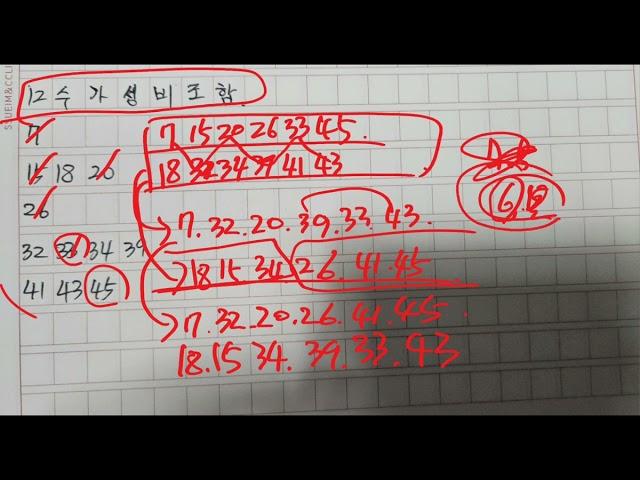 12 수 가 성 비 조 함
7
15 18 20
26
32 33 34 39
41 43 45
7 15 20 26 33 45.
18 32 34 39 41 43
7. 32. 20. 39. 33. 43.
18 15 34 26. 41. 45
7. 32. 20. 26. 41. 45.
18. 15 34. 39. 33. 43
6.